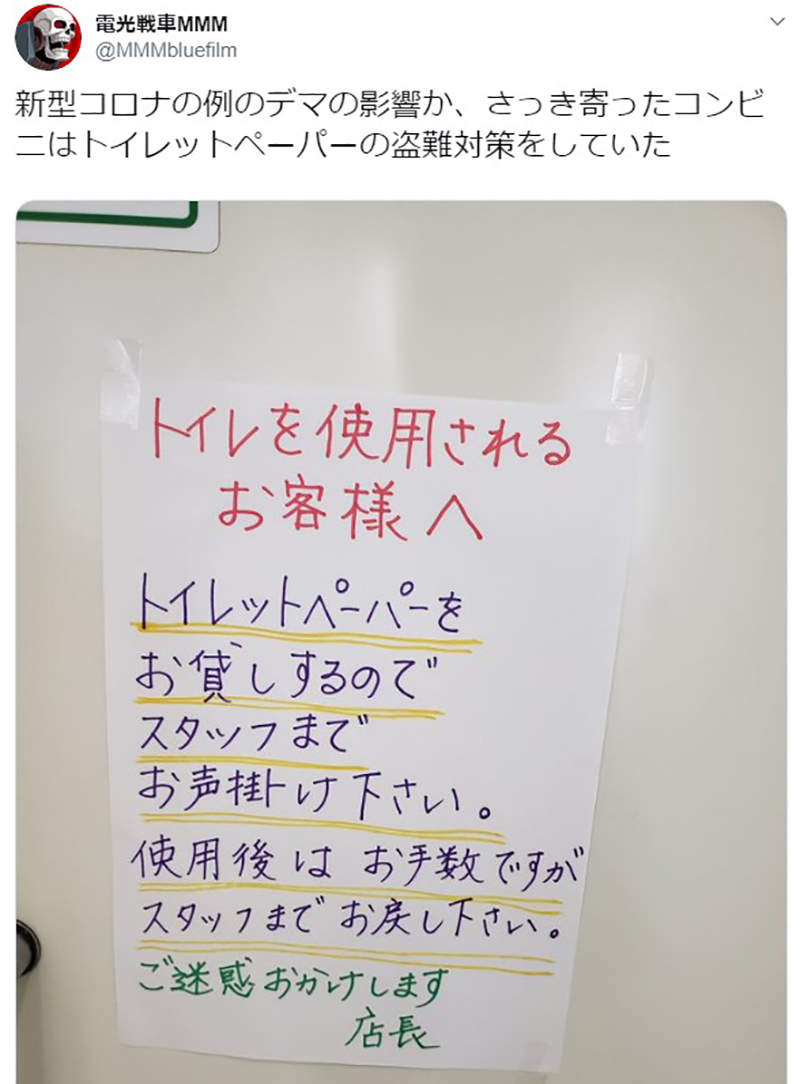 電光戦車MMM
@MMMbluefilm
新型コロナの例のデマの影響か、さっき寄ったコンビ
ニはトイレットペーパーの盗難対策をしていた
トイレを使用される
お客様へ
トイレットペーパーを
お貸しするので
スタッフまで
お声掛け下さい。
使用後は お手数ですが
スタッフまで お戻し下さい。
ご迷惑おかけします
店長